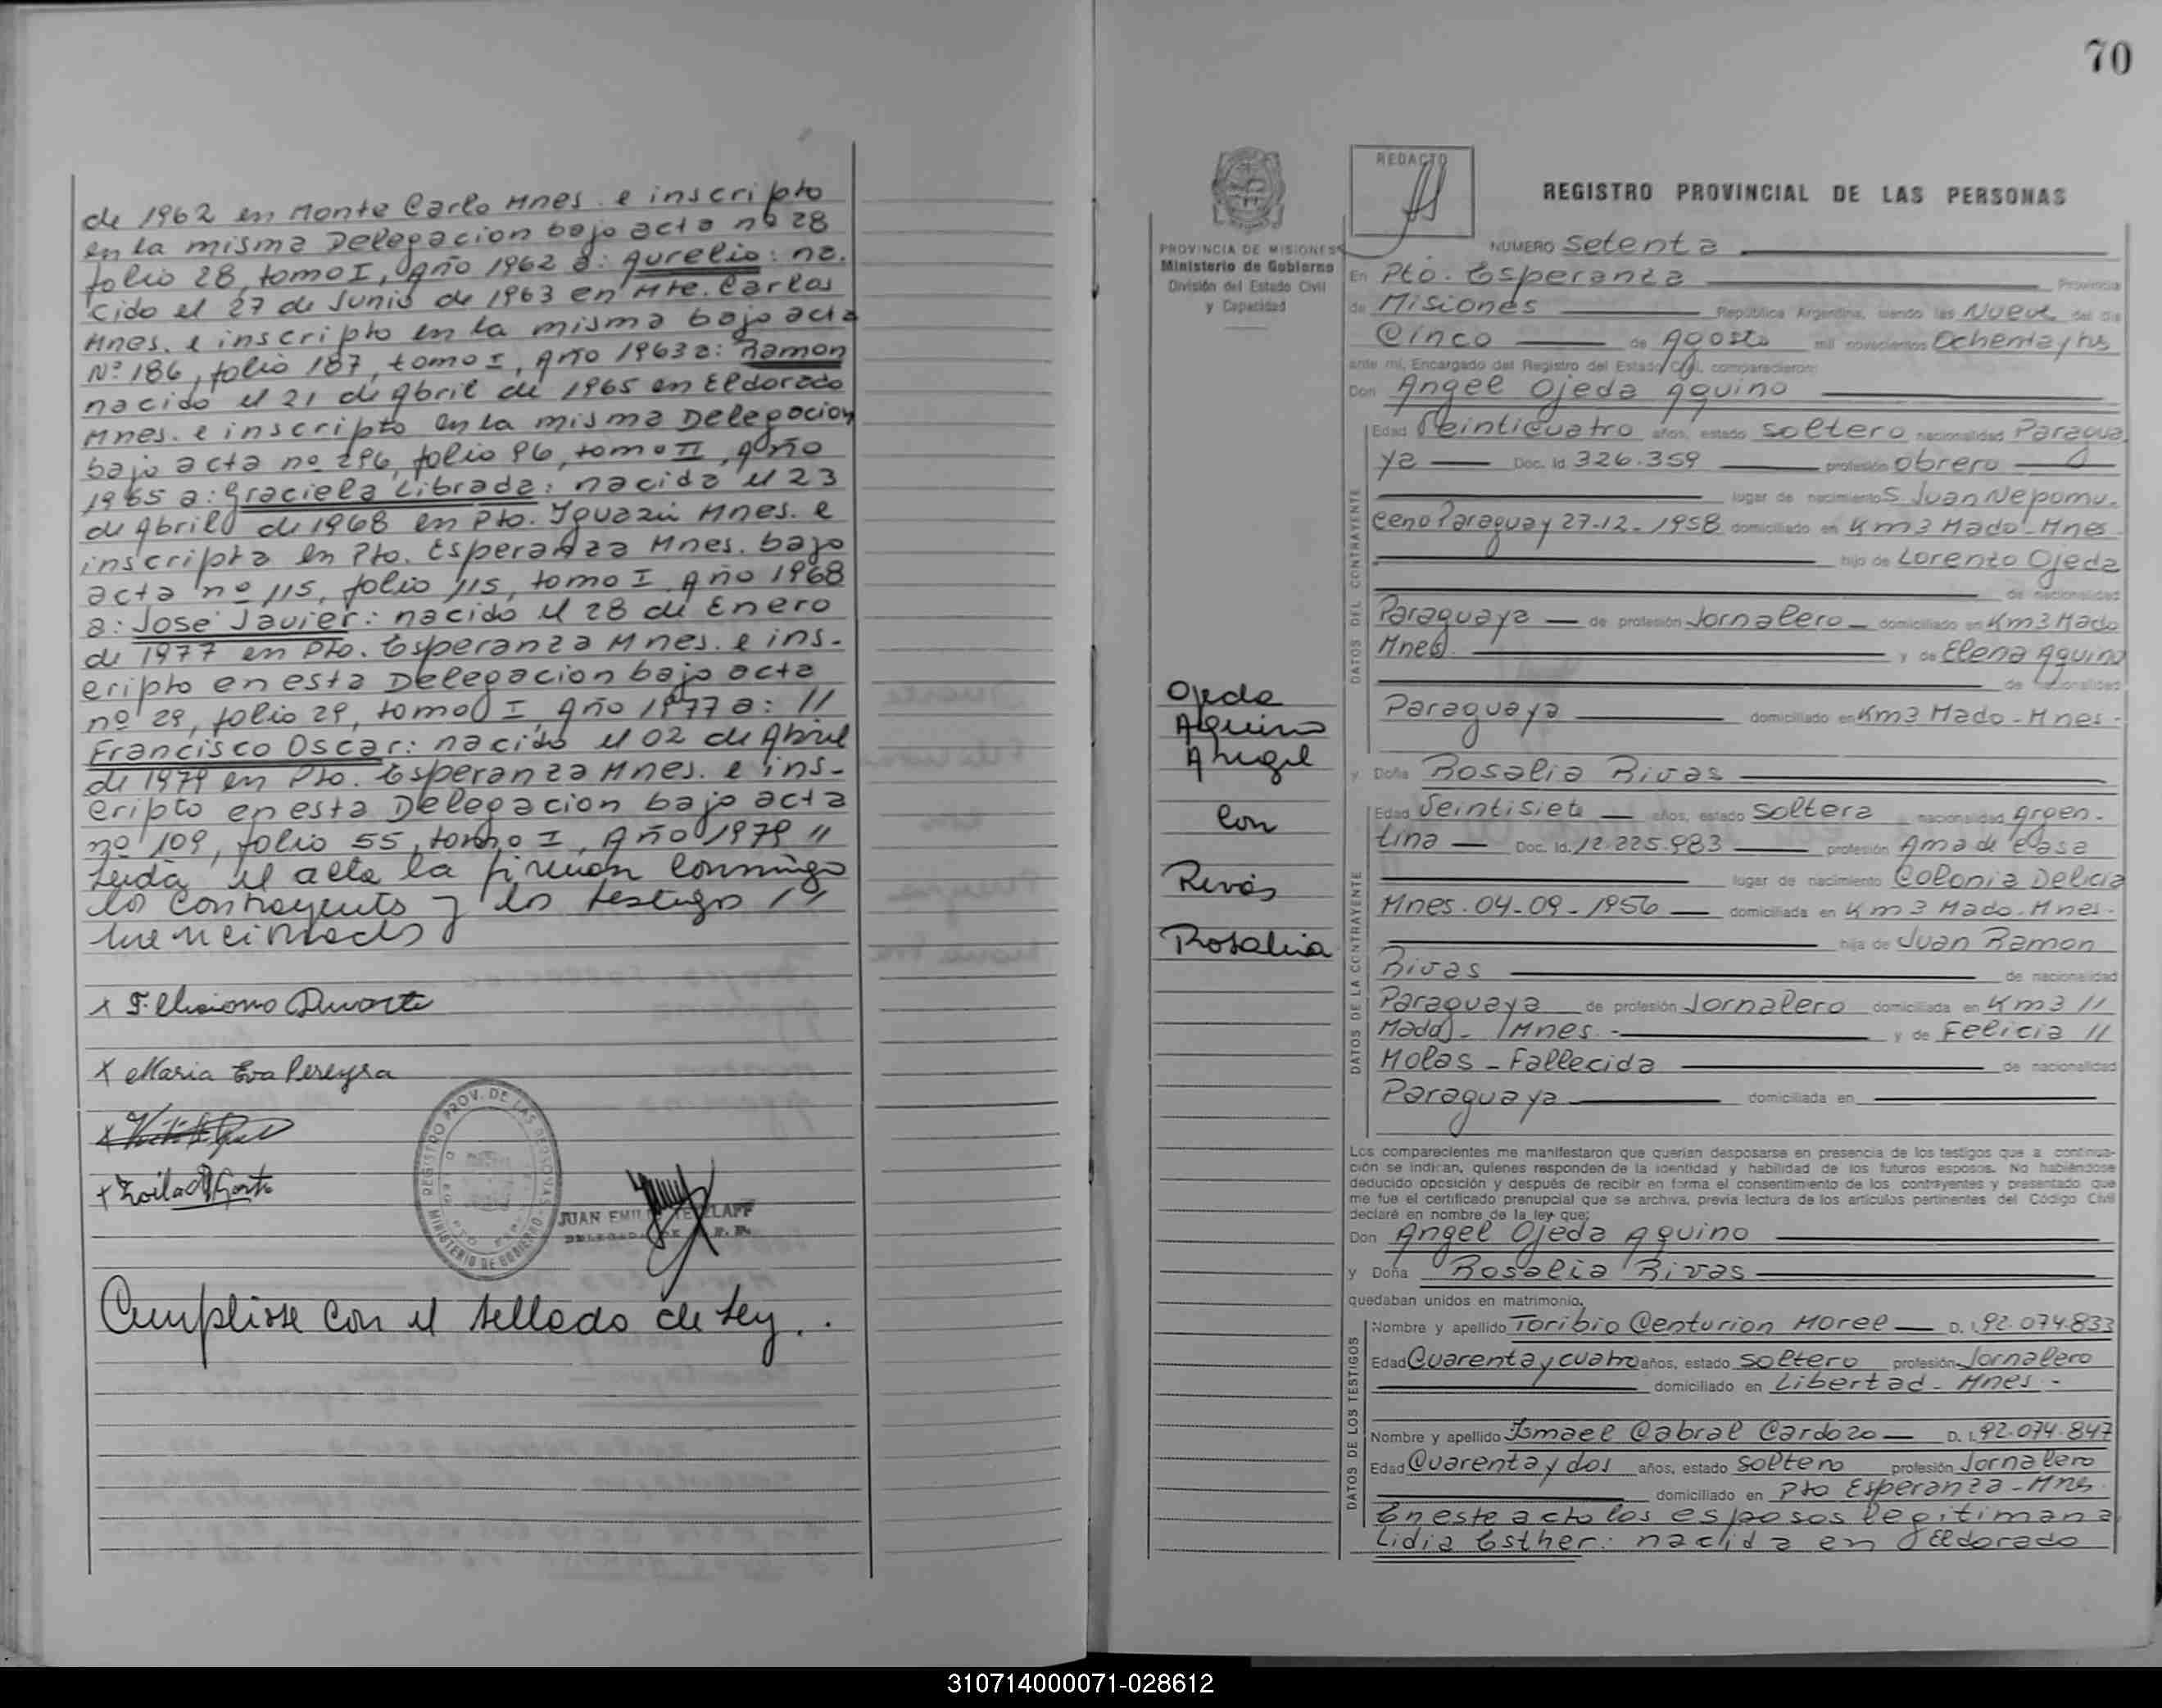 de 1962 en Monte Carlo Mnes. e inscripto
en la misma Delegacion bajo acta nº 28
folio 28, tomo I, Año 1962 a: Aurelio: na.
cido el 27 de Junio de 1963 en Mte. Carlos
Mnes. e inscripto en la misma bajo acta
Nº 186, folio 187, tomo I, Año 1963 a: Ramon
nacido el 21 de Abril de 1965 en Eldorado
Mnes. e inscripto en la misma Delegacion
bajo acta nº 296, folio 96, tomo II, Año
1965 a: Graciela Librada: nacida el 23
de Abril de 1968 en Pto. Iguazú Mnes. e
inscripta en Pto. Esperanza Mnes. bajo
acta nº 115, folio 115, tomo I Año 1968
a: Jose Javier: nacido el 28 de Enero
de 1977 en Pto. Esperanza Mnes. e ins-
cripto en esta Delegacion bajo acta
nº 29, folio 29, tomo I, Año 1977 a: //
Francisco Oscar: nacido el 02 de Abril
de 1979 en Pto. Esperanza Mnes. e ins-
cripto en esta Delegacion bajo acta
nº 109, folio 55, tomo I, Año 1979 //
Leida el acta la firman conmigo
los contrayentes y los testigos //
mencionados
x Duarte
x Maria Eva Pereyra
REGISTRO PROV. DE LAS PERSONAS
MINISTERIO DE GOBIERNO
JUAN
Cumpliose con el sellado de Ley..
70
REDACTO
PROVINCIA DE MISIONES
Ministerio de Gobierno
División del Estado Civil
y Capacidad
Ojeda
Aquino
Angel
con
Rivas
Rosalia
REGISTRO PROVINCIAL DE LAS PERSONAS
NUMERO Setenta
En Pto. Esperanza Provincia
de Misiones República Argentina, siendo las Nueve del día
Cinco de Agosto mil novecientos Ochenta y tres
ante mí, Encargado del Registro del Estado Civil, comparecieron:
Don Angel Ojeda Aquino
DATOS DEL CONTRAYENTE
Edad Veinticuatro años, estado soltero nacionalidad Paragua
ya Doc. Id. 326.359 profesión obrero
lugar de nacimiento S. Juan Nepomu.
ceno Paraguay 27-12-1958 domiciliado en Km 3 Mado-Mnes
hijo de Lorenzo Ojeda
de nacionalidad
Paraguaya de profesión Jornalero domiciliado en Km 3 Mado
Mnes. y de Elena Aquino
de nacionalidad
Paraguaya domiciliado en Km 3 Mado-Mnes-
y Doña Rosalia Rivas
DATOS DE LA CONTRAYENTE
Edad Veintisiete años, estado soltera nacionalidad Argen-
tina Doc. Id. 12.225.983 profesión Ama de Casa
lugar de nacimiento Colonia Delicia
Mnes. 04-09-1956 domiciliada en Km 3 Mado. Mnes-
hija de Juan Ramon
Rivas de nacionalidad
Paraguaya de profesión Jornalero domiciliada en Km 3 //
Mado- Mnes.- y de Felicia //
Molas-Fallecida de nacionalidad
Paraguaya domiciliada en
Los comparecientes me manifestaron que querían desposarse en presencia de los testigos que a continua-
ción se indican, quienes responden de la identidad y habilidad de los futuros esposos. No habiéndose
deducido oposición y después de recibir en forma el consentimiento de los contrayentes y presentado que
me fue el certificado prenupcial que se archiva, previa lectura de los artículos pertinentes del Código Civil
declaré en nombre de la ley que:
Don Angel Ojeda Aquino
y Doña Rosalia Rivas
quedaban unidos en matrimonio.
DATOS DE LOS TESTIGOS
Nombre y apellido Toribio Centurion Morel D. I. 92.074.833
Edad Cuarenta y cuatro años, estado soltero profesión Jornalero
domiciliado en Libertad-Mnes-
Nombre y apellido Ismael Cabral Cardozo D. I. 92.074.847
Edad Cuarenta y dos años, estado soltero profesión Jornalero
domiciliado en Pto Esperanza-Mnes.
En este acto los esposos legitiman a
Lidia Esther: nacida en Eldorado
310714000071-028612